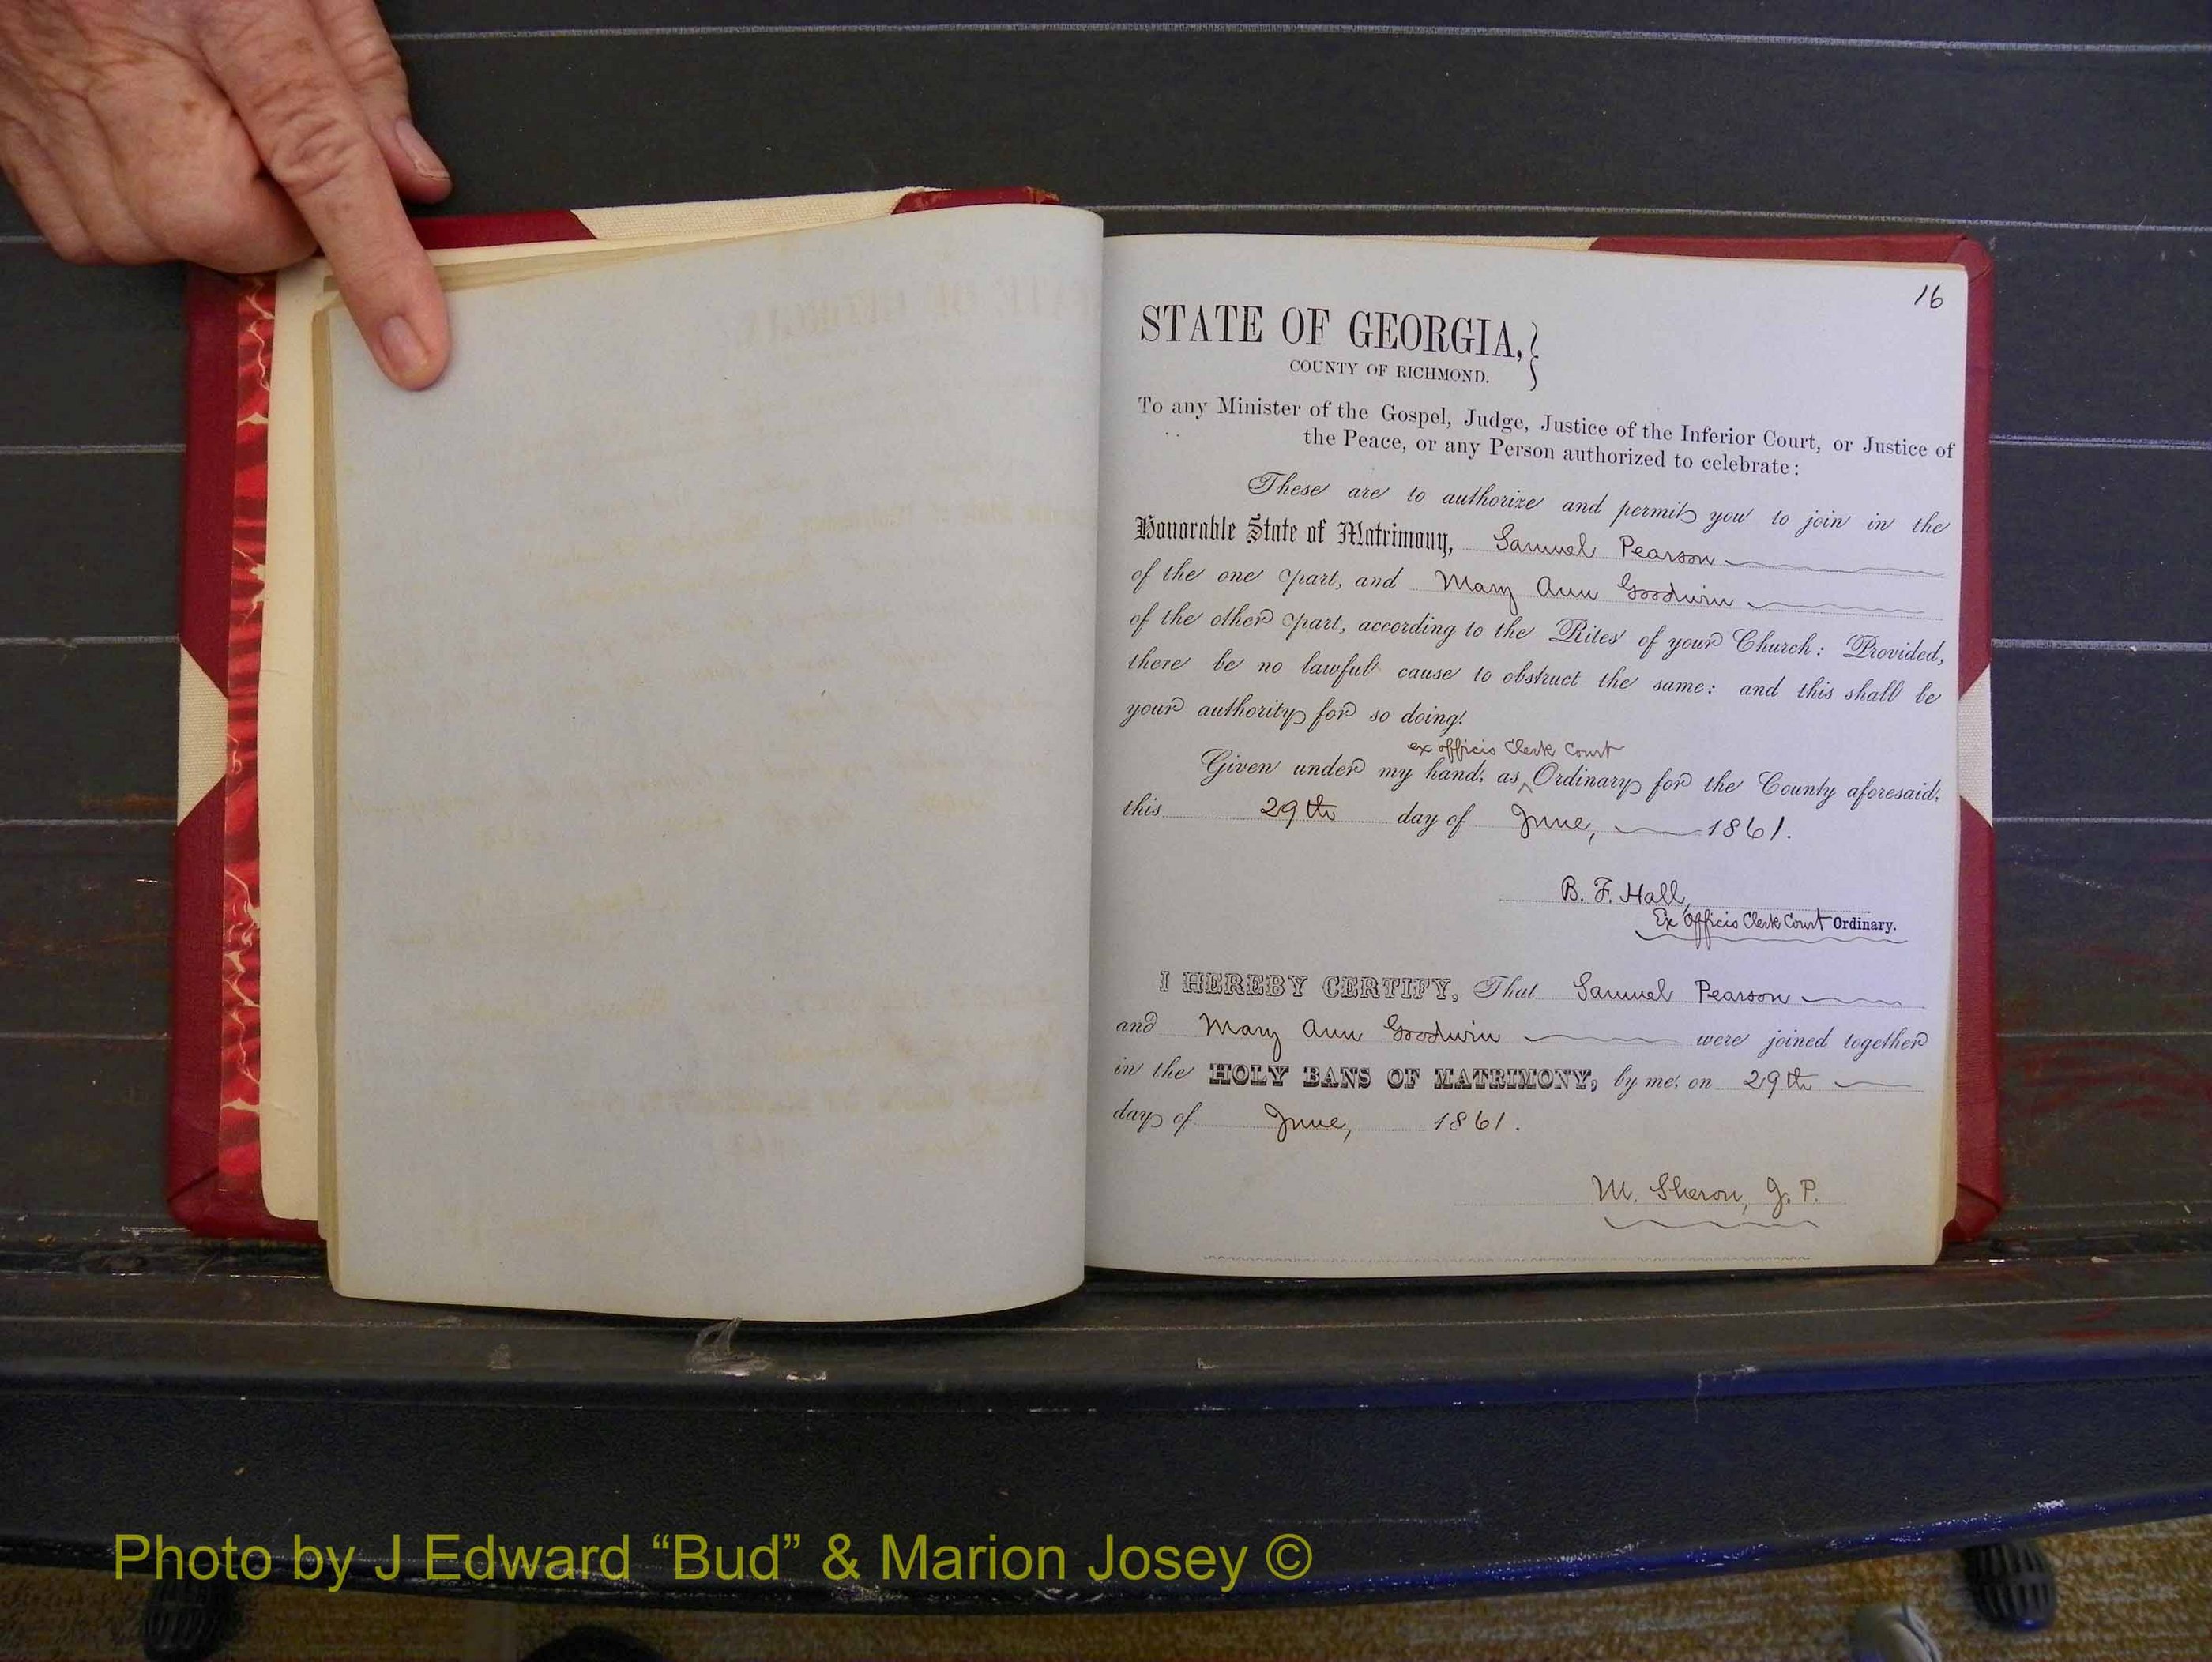 16
STATE OF GEORGIA,
COUNTY OF RICHMOND.
To any Minister of the Gospel, Judge, Justice of the Inferior Court, or Justice of
the Peace, or any Person authorized to celebrate:
These are to authorize and permit you to join in the
Honorable State of Matrimony, Samuel Pearson
of the one part, and Mary Ann Goodwin
of the other part, according to the Rites of your Church: Provided,
there be no lawful cause to obstruct the same: and this shall be
your authority for so doing.
ex officio Clerk Court
Given under my hand, as ^ Ordinary for the County aforesaid,
this 29th day of June, 1861.
B. F. Hall,
Ex Officio Clerk Court Ordinary.
I HEREBY CERTIFY, That Samuel Pearson
and Mary Ann Goodwin were joined together
in the HOLY BANS OF MATRIMONY, by me, on 29th
day of June, 1861.
M. Sheron, J. P.
Photo by J Edward “Bud” & Marion Josey ©